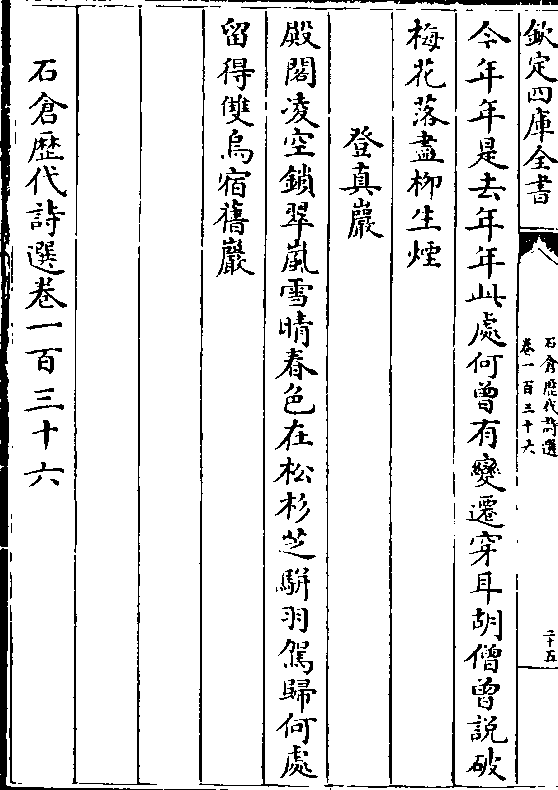 欽定四庫全書
石倉歷代詩選
卷一百三十六
二十五
今年年是去年年此處何曾有變遷穿耳胡僧曾説破
梅花落盡柳生煙
登真巖
殿閣凌空鎖翠嵐雪晴春色在松杉芝駢羽駕歸何處
留得雙烏宿舊巖
石倉歷代詩選卷一百三十六